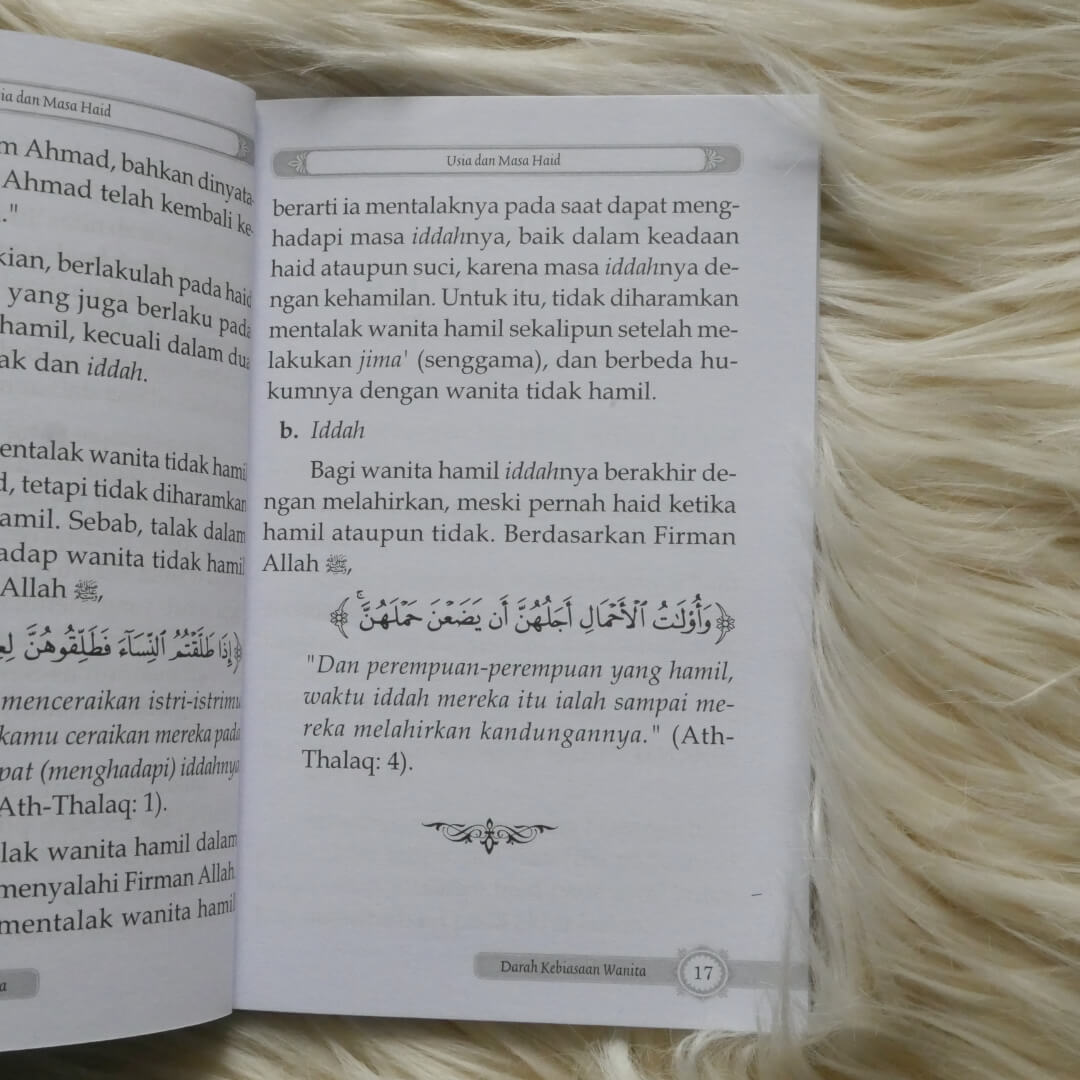 ia dan Masa Haid
m Ahmad, bahkan dinyata-
Ahmad telah kembali ke-
."
kian, berlakulah pada haid
yang juga berlaku pada
hamil, kecuali dalam dua
ak dan iddah.
entalak wanita tidak hamil
d, tetapi tidak diharamkan
amil. Sebab, talak dalam
adap wanita tidak hamil
Allah ﷻ,
﴿إِذَا طَلَّقْتُمُ ٱلنِّسَآءَ فَطَلِّقُوهُنَّ
menceraikan istri-istrimu
kamu ceraikan mereka pada
pat (menghadapi) iddahnya
Ath-Thalaq: 1).
lak wanita hamil dalam
menyalahi Firman Allah.
mentalak wanita hamil
a
Usia dan Masa Haid
berarti ia mentalaknya pada saat dapat meng-
hadapi masa iddahnya, baik dalam keadaan
haid ataupun suci, karena masa iddahnya de-
ngan kehamilan. Untuk itu, tidak diharamkan
mentalak wanita hamil sekalipun setelah me-
lakukan jima' (senggama), dan berbeda hu-
kumnya dengan wanita tidak hamil.
b. Iddah
Bagi wanita hamil iddahnya berakhir de-
ngan melahirkan, meski pernah haid ketika
hamil ataupun tidak. Berdasarkan Firman
Allah ﷻ,
﴿وَأُو۟لَـٰتُ ٱلْأَحْمَالِ أَجَلُهُنَّ أَن يَضَعْنَ حَمْلَهُنَّ ۚ﴾
"Dan perempuan-perempuan yang hamil,
waktu iddah mereka itu ialah sampai me-
reka melahirkan kandungannya." (Ath-
Thalaq: 4).
Darah Kebiasaan Wanita 17